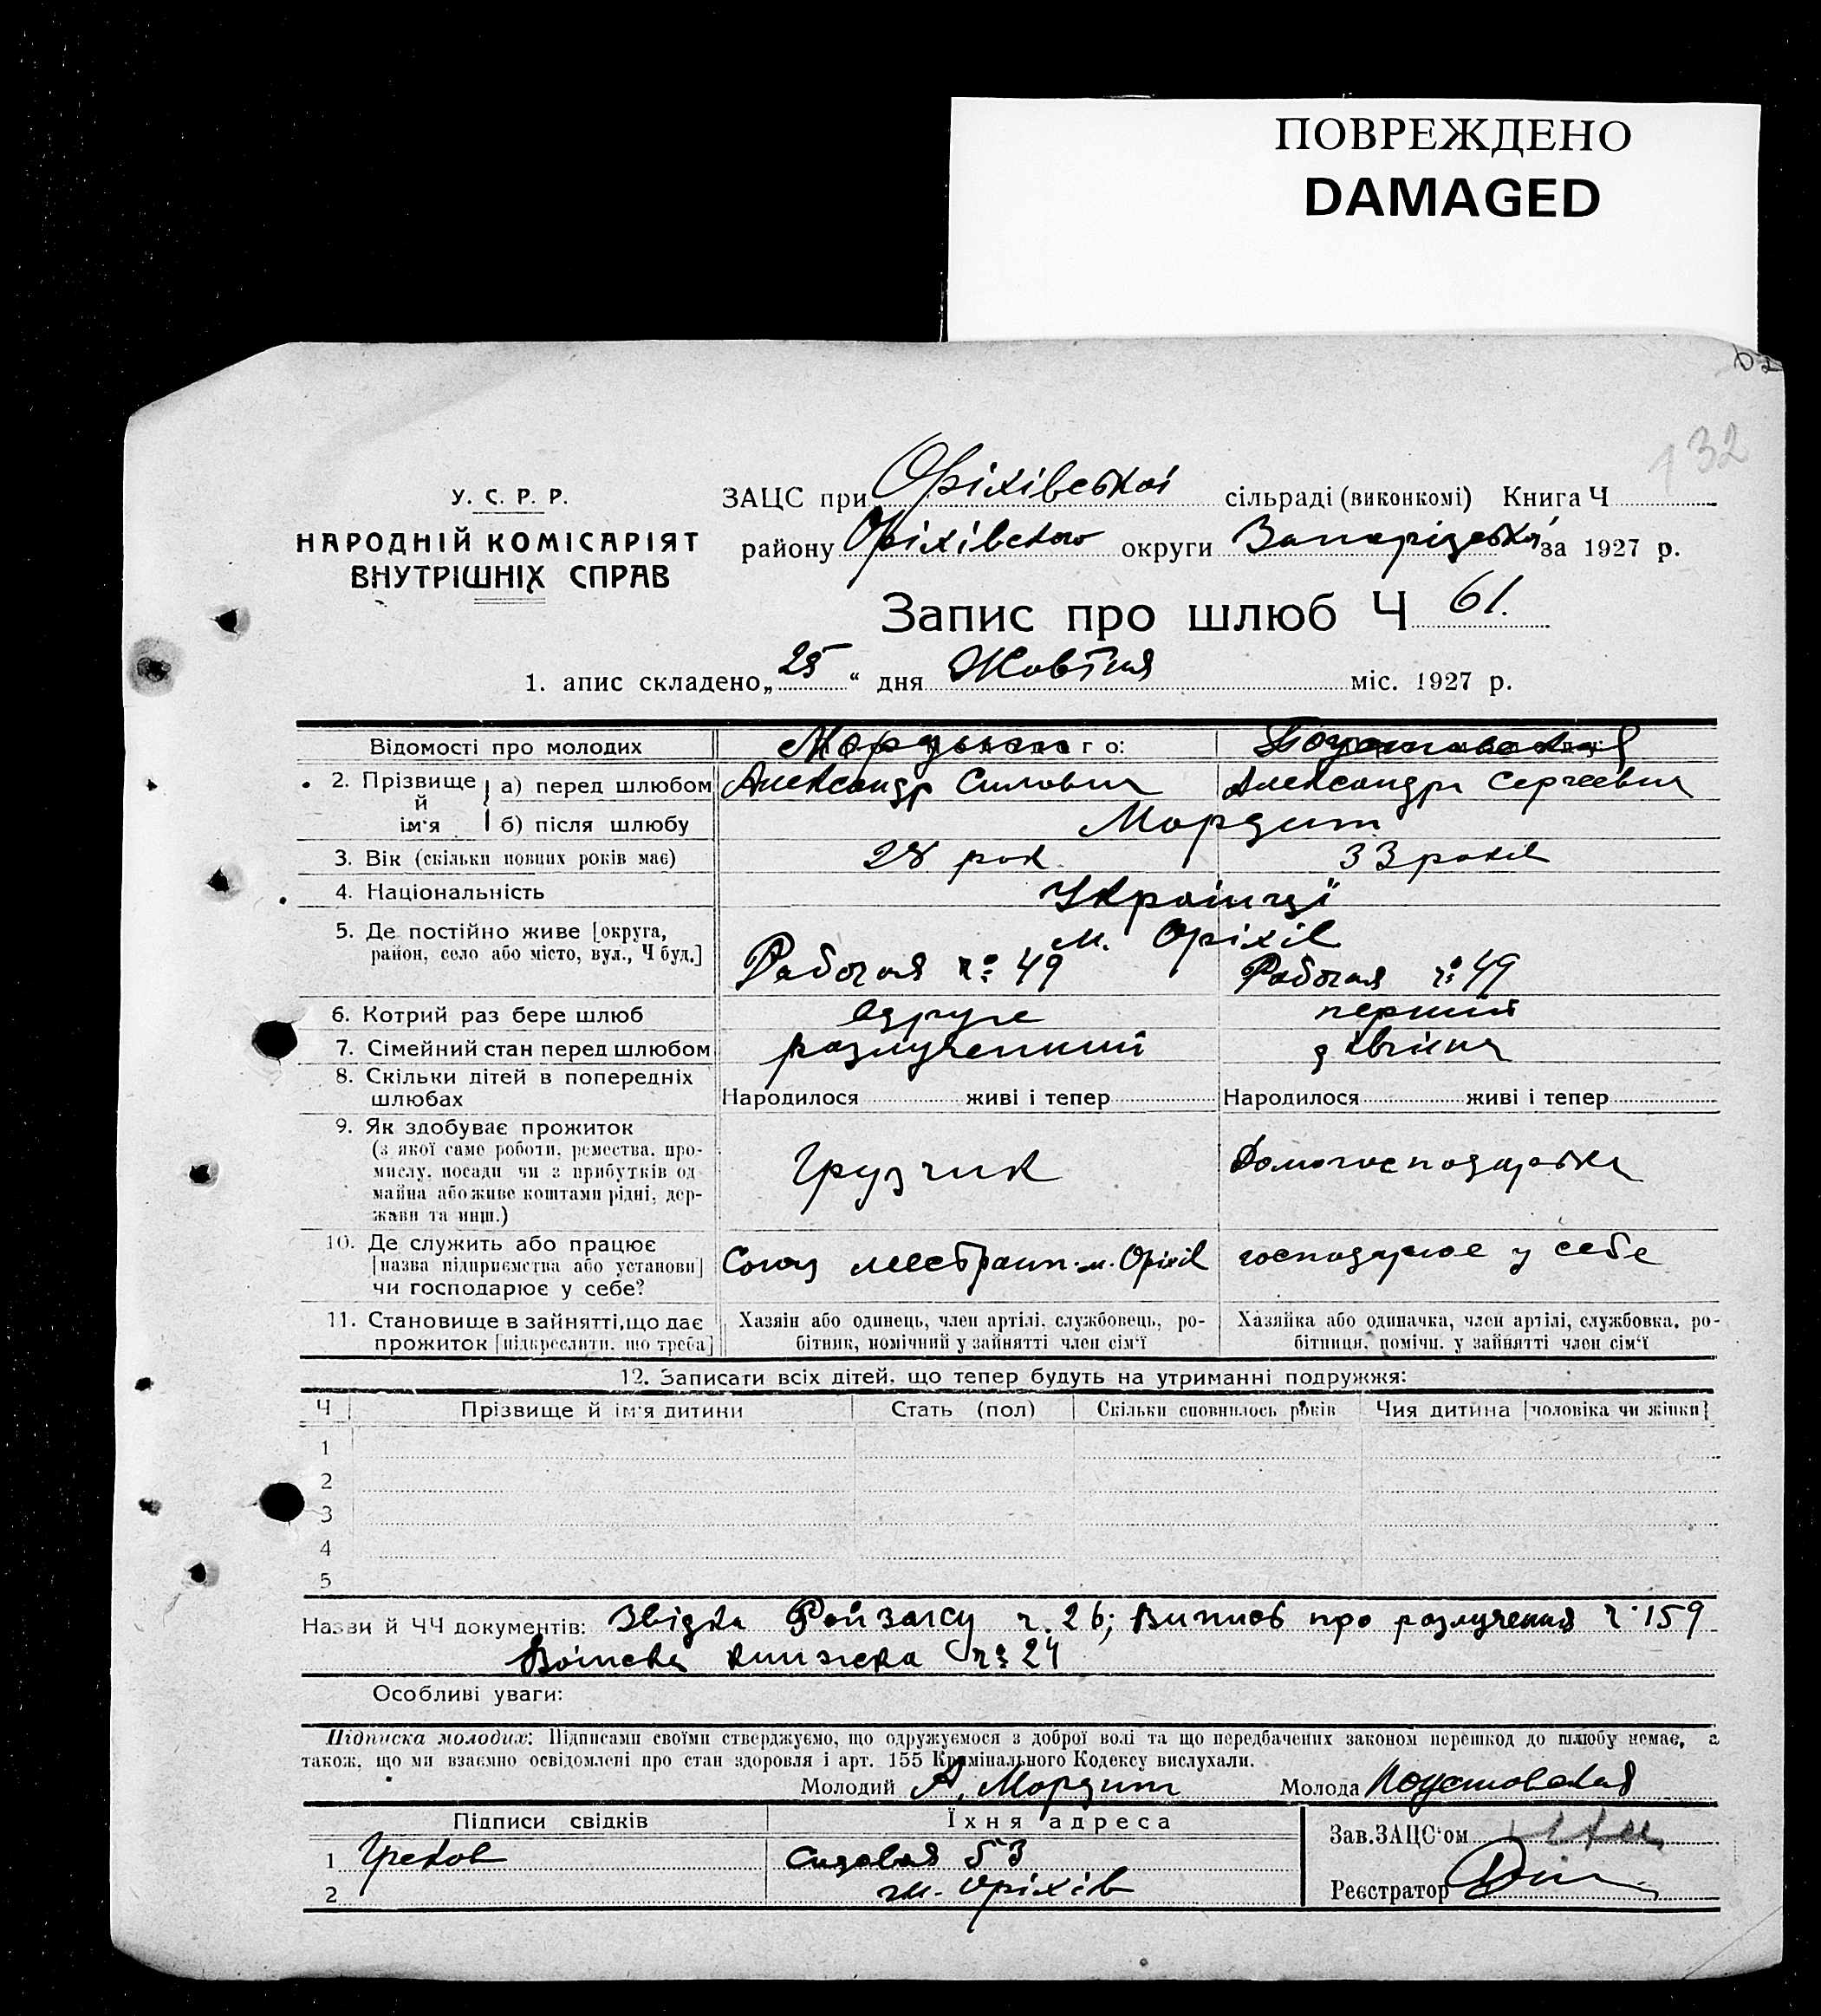 ПОВРЕЖДЕНО
DAMAGED
132
У. С. Р. Р.
НАРОДНІЙ КОМІСАРІЯТ
ВНУТРІШНІХ СПРАВ
ЗАЦС при Оріхівської сільраді (виконкомі) Книга Ч
району Оріхівського округи Запорізької за 1927 р.
Запис про шлюб Ч 61.
1. апис складено „25“ дня Жовтня міс. 1927 р.
Відомості про молодих го:
2. Прізвище й ім'я а) перед шлюбом Александр Силович Александра Сергеевна
б) після шлюбу Мордит
3. Вік (скільки повних років має) 28 рок 33 років
4. Національність Українці
5. Де постійно живе [округа, район, село або місто, вул., Ч буд.] м. Оріхів
Рабочая № 49 Рабочая № 49
6. Котрий раз бере шлюб вдруге перший
7. Сімейний стан перед шлюбом разлученний дівчина
8. Скільки дітей в попередніх шлюбах Народилося живі і тепер Народилося живі і тепер
9. Як здобуває прожиток
(з якої саме роботи, ремества, про-
мислу, посади чи з прибутків од
майна або живе коштами рідні, дер-
жави та инш.) Грузчик Домогосподарка
10. Де служить або працює
[назва підприємства або установи]
чи господарює у себе? Союз местран. м. Оріхів господарює у себе
11. Становище в зайнятті, що дає
прожиток [підкреслити, що треба]
Хазяін або одинець, член артілі, службовець, ро-
бітник, помічний у зайнятті член сім'ї
Хазяйка або одиначка, член артілі, службовка, ро-
бітниця, помічн. у зайнятті член сім'ї
12. Записати всіх дітей, що тепер будуть на утриманні подружжя:
Ч Прізвище й ім'я дитини Стать (пол) Скільки сповнилось років Чия дитина [чоловіка чи жінки]
1
2
3
4
5
Назви й ЧЧ документів: Звідка Райзагсу ч. 26; Випись про разлучення ч. 159
Воінска книжка № 24
Особливі уваги:
Підписка молодих: Підписами своїми стверджуємо, що одружуємося з доброї волі та що передбачених законом перешкод до шлюбу немає, а
також, що ми взаємно освідомлені про стан здоровля і арт. 155 Кримінального Кодексу вислухали.
Молодий А. Мордит Молода Поустовская
Підписи свідків Їхня адреса
Зав. ЗАЦС'ом
1 Греков Садовая 53
2 м. Оріхів
Реєстратор